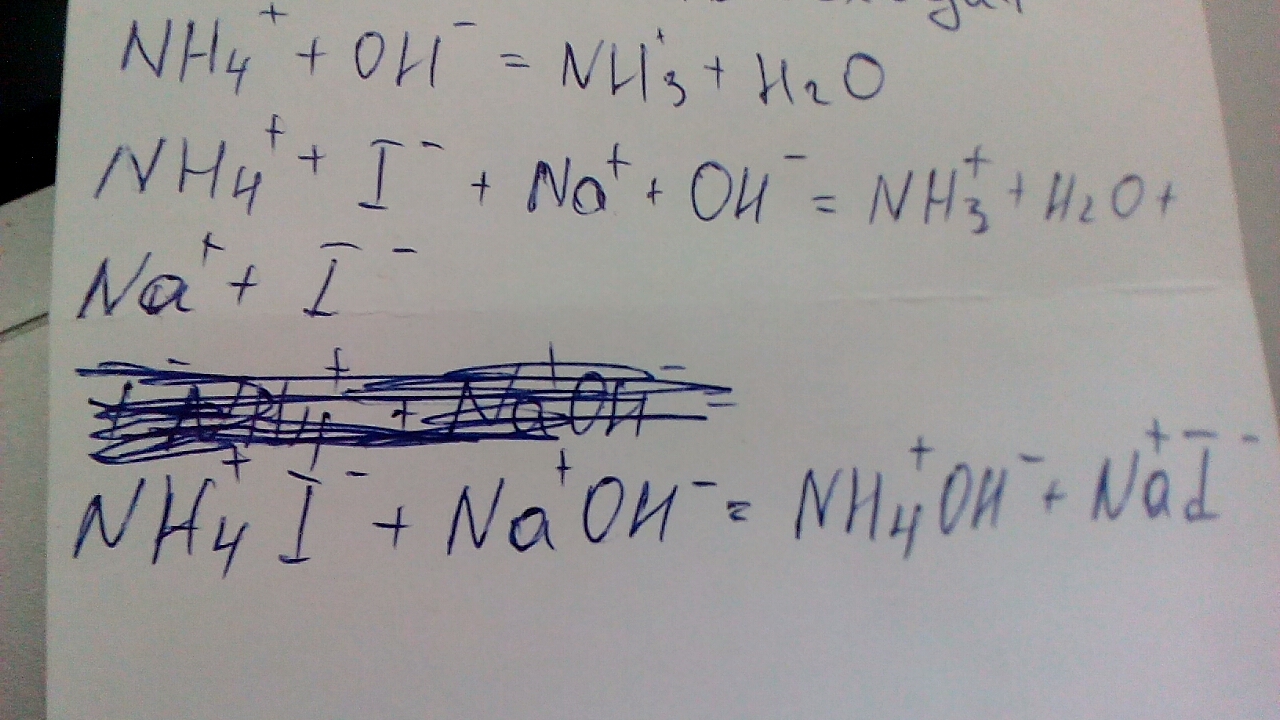 NH₄⁺ + OH⁻ = NH₃⁺ + H₂O
NH₄⁺ + I⁻ + Na⁺ + OH⁻ = NH₃⁺ + H₂O +
Na⁺ + I⁻
NH₄⁺I⁻ + Na⁺OH⁻ = NH₄⁺OH⁻ + Na⁺I⁻